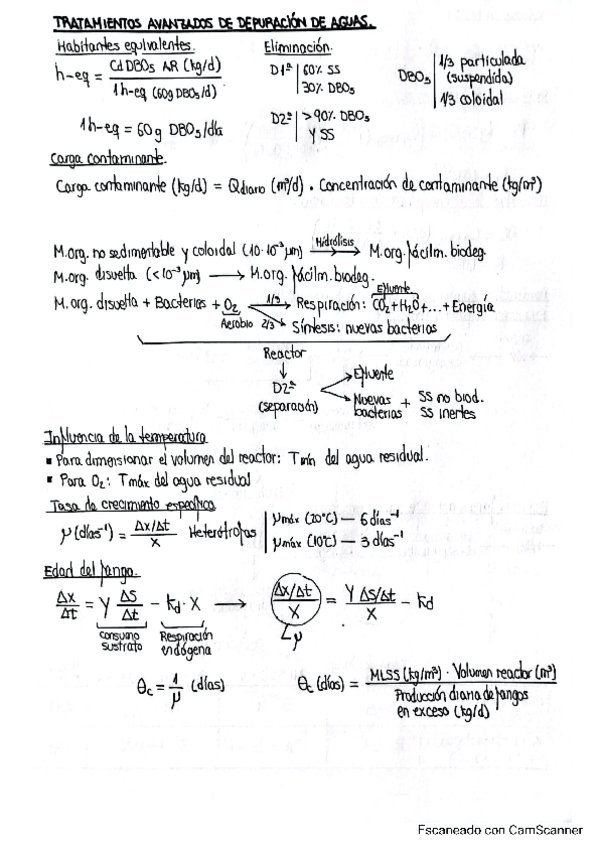 TRATAMIENTOS AVANZADOS DE DEPURACIÓN DE AGUAS.
Habitantes equivalentes.
h-eq = Cd DBO5 AR (kg/d) / 1h-eq (60g DBO5/d)
1h-eq = 60g DBO5/día
Eliminación.
D1ª | 60% SS
30% DBO5
D2ª | >90% DBO5
Y SS
DBO5 | 1/3 particulada
(suspendida)
1/3 coloidal
Carga contaminante.
Carga contaminante (kg/d) = Qdiario (m³/d) · Concentración de contaminante (kg/m³)
M.org. no sedimentable y coloidal (10-10⁻³ µm) —Hidrólisis→ M.org. fácilm. biodeg.
M.org. disuelta (<10⁻³ µm) → M.org. fácilm. biodeg.
M.org. disuelta + Bacterias + O2 —1/3→ Respiración: CO2+H2O+...+Energía
Efluente
Aerobio 2/3 → Síntesis: nuevas bacterias
Reactor
↓
D2ª
(separación)
→ Efluente
→ Nuevas bacterias + SS no biod.
SS inertes
Influencia de la temperatura
▪ Para dimensionar el volumen del reactor: Tmín del agua residual.
▪ Para O2: Tmáx del agua residual
Tasa de crecimiento específica
µ (días⁻¹) = Δx/Δt / X Heterótrofas | µmáx (20°C) — 6 días⁻¹
µmáx (10°C) — 3 días⁻¹
Edad del fango.
Δx/Δt = Y ΔS/Δt - Kd · X → (Δx/Δt)/X = Y ΔS/Δt / X - Kd
consumo sustrato
Respiración endógena
µ
θc = 1/µ (días)
θc (días) = MLSS (kg/m³) · Volumen reactor (m³) / Producción diaria de fangos en exceso (kg/d)
Escaneado con CamScanner